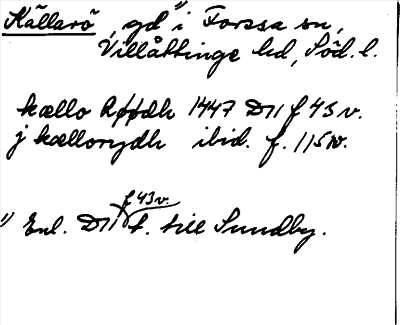 Källarö, gd ¹) i Forssa sn,
Villåttinge hd, Söd. l.
kællo Røødh 1447 D11 f 43 v.
j kællorydh ibid. f. 115 v.
f 43 v.
¹) Enl. D11 t. till Sundby.